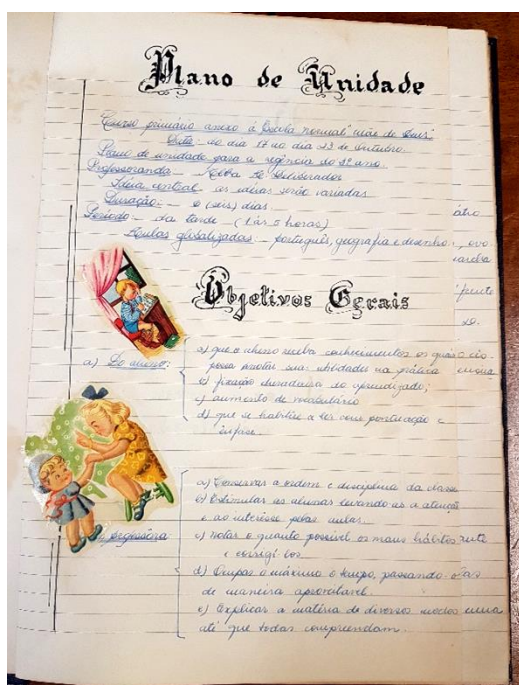 Plano de Unidade
Curso primário anexo à Escola normal "Mãe de Deus"
Data: do dia 17 ao dia 23 de Outubro.
Plano de unidade para a regência do 2º ano.
Professoranda - Deliberador
Idéia central as idéias serão variadas
Duração: - 6 (seis) dias
Período: - da tarde - (1 às 5 horas)
Aulas globalizadas: - português, geografia e desenho
Objetivos Gerais
a) Do aluno:
a) que o aluno receba conhecimentos os quais
possa anotar suas utilidades na prática
b) fixação duradoura do aprendizado;
c) aumento do vocabulário
d) que se habilite a ler com pontuação e
ênfase.
professôra
a) Conservar a ordem e disciplina da classe
b) Estimular as alunas levando-as a atenção
e ao interêsse pelas aulas.
c) Notar o quanto possível os maus hábitos
e corrigi-los
d) Ocupar o máximo o tempo, passando-o
de maneira aproveitável.
e) Explicar a matéria de diversos modos
até que todas compreendam.